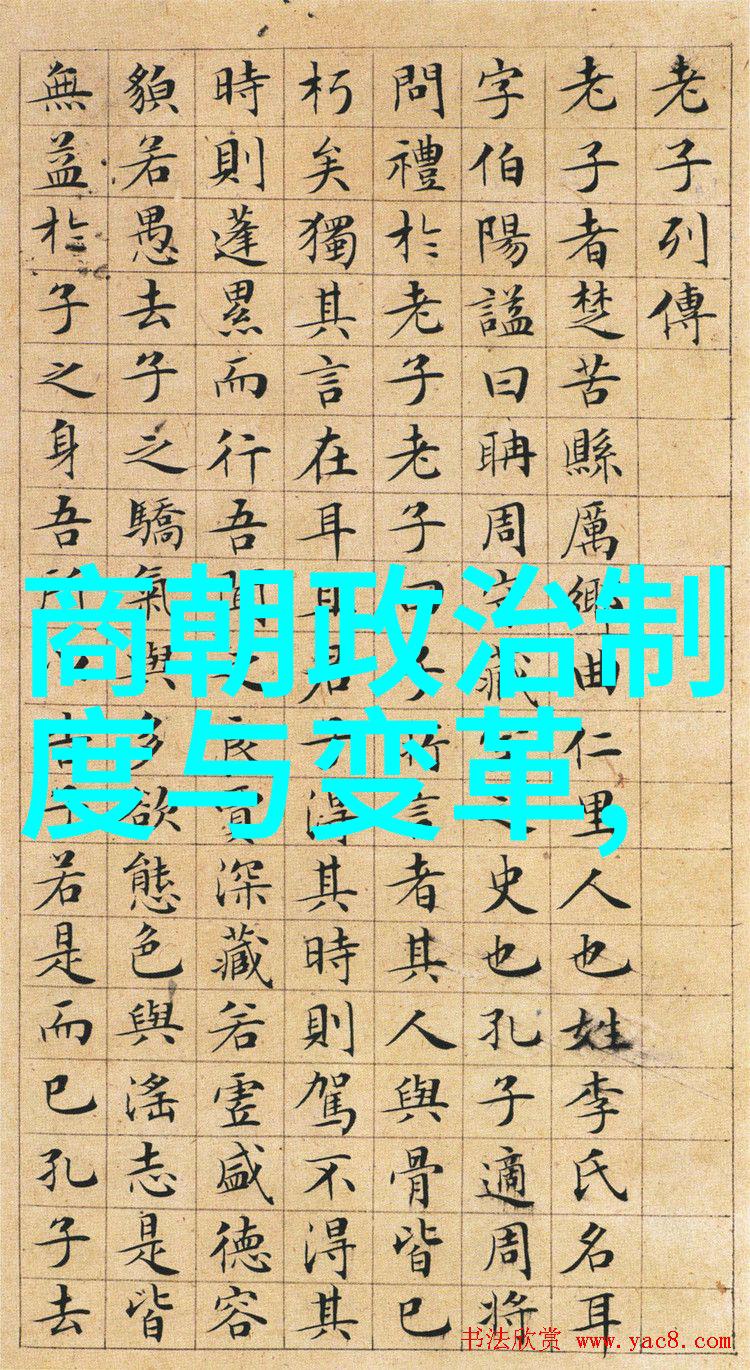 老子列傳
老子者楚苦縣厲鄉曲仁里人也姓李氏名耳
字伯陽謚曰聃周守藏室之史也孔子適周將
問禮於老子老子曰子所言者其人與骨皆已
朽矣獨其言在耳且君子得其時則駕不得其
時則蓬累而行吾聞之良賈深藏若虛盛德容
䫉若愚去子之驕氣與多欲態色與淫志是皆
無益於子之身吾所以告子若是而已孔子去
商朝政治制
度与变革,
书法欣赏 www.yac8.com